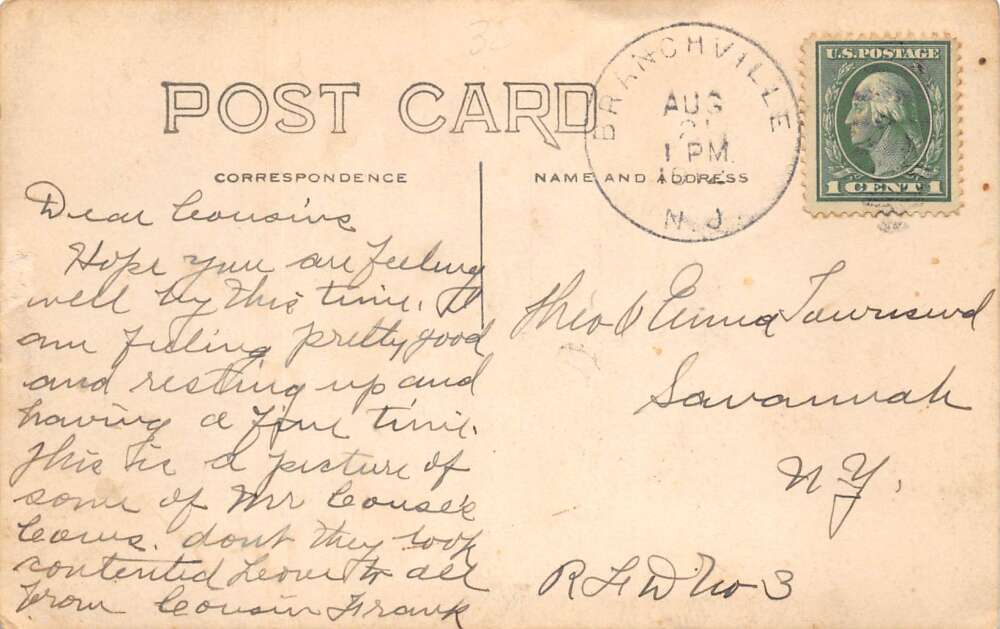 POST CARD
CORRESPONDENCE
NAME AND ADDRESS
BRANCHVILLE
AUG
1 PM
N J
U.S. POSTAGE
1 CENT 1
Dear Cousins
Hope you are feeling
well by this time. I
am feeling pretty good
and resting up and
having a fine time.
This is a picture of
some of Mr Couse's
Cows. dont they look
contented Love to all
From Cousin Frank
Theo & Emma Townsend
Savannah
N Y.
R F D No 3